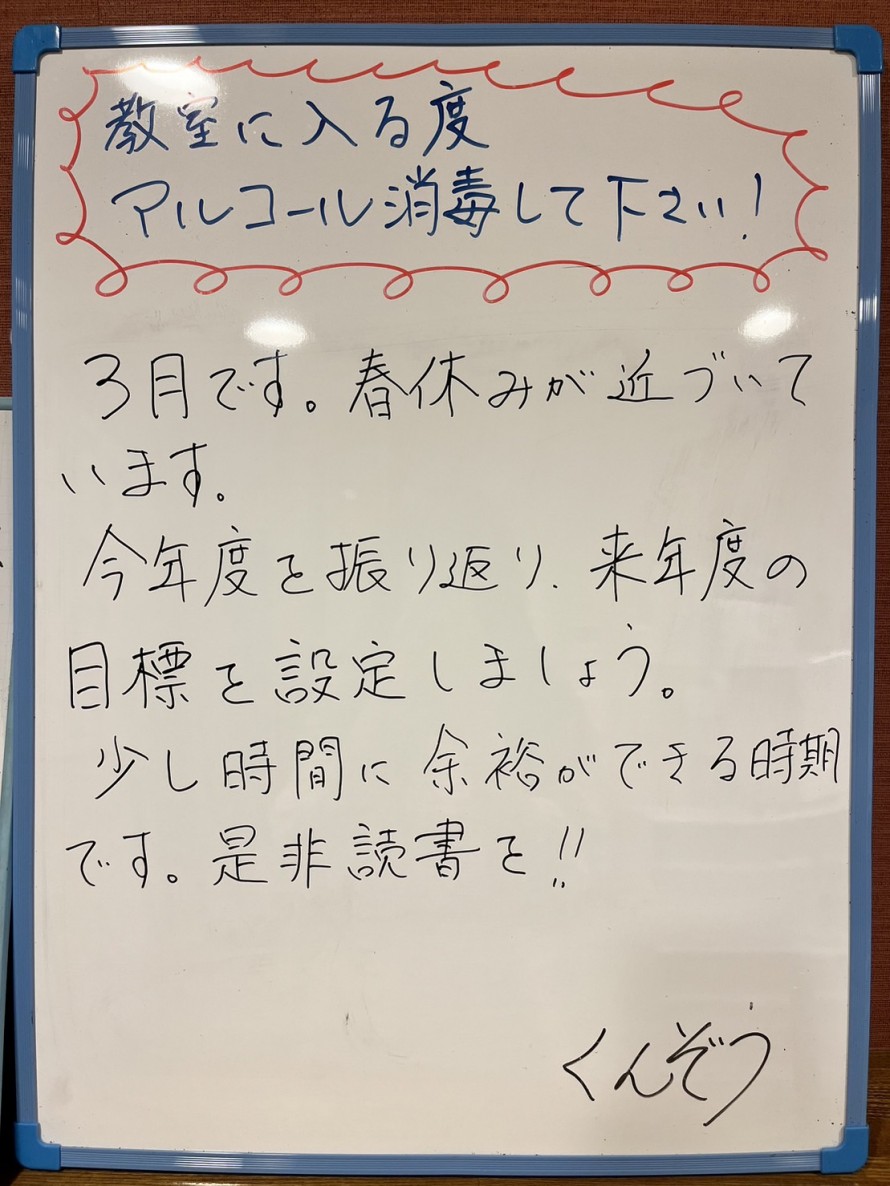 教室に入る度
アルコール消毒して下さい!
3月です。春休みが近づいて
います。
今年度を振り返り、来年度の
目標を設定しましょう。
少し時間に余裕ができる時期
です。是非読書を!!
くんぞう